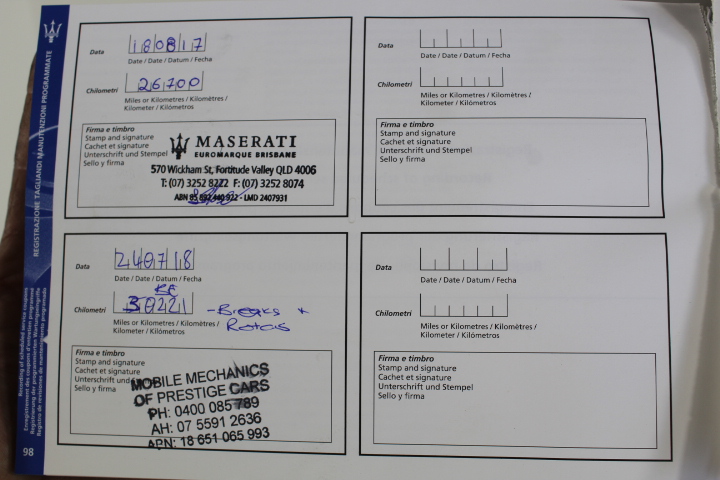 REGISTRAZIONE TAGLIANDI MANUTENZIONI PROGRAMMATE
Recording of scheduled service coupons
Enregistrement des coupons d'entretien programmé
Registrierung der programmierten Wartungseingriffe
Registro de revisiones de mantenimiento programado
98
Data
180817
Date / Date / Datum / Fecha
Chilometri
26700
Miles or Kilometres / Kilomètres /
Kilometer / Kilómetros
Firma e timbro
Stamp and signature
Cachet et signature
Unterschrift und Stempel
Sello y firma
MASERATI
EUROMARQUE BRISBANE
570 Wickham St, Fortitude Valley QLD 4006
T: (07) 3252 8222 F: (07) 3252 8074
ABN 85 892 440 922 - LMD 2407931
Data
Date / Date / Datum / Fecha
Chilometri
Miles or Kilometres / Kilomètres /
Kilometer / Kilómetros
Firma e timbro
Stamp and signature
Cachet et signature
Unterschrift und Stempel
Sello y firma
Data
240718
Date / Date / Datum / Fecha
Chilometri
30221
- Breaks +
Rotors
Miles or Kilometres / Kilomètres /
Kilometer / Kilómetros
Firma e timbro
Stamp and signature
Cachet et signature
Unterschrift und
Sello y firma
MOBILE MECHANICS
OF PRESTIGE CARS
PH: 0400 085 789
AH: 07 5591 2636
ABN: 18 651 065 993
Data
Date / Date / Datum / Fecha
Chilometri
Miles or Kilometres / Kilomètres /
Kilometer / Kilómetros
Firma e timbro
Stamp and signature
Cachet et signature
Unterschrift und Stempel
Sello y firma